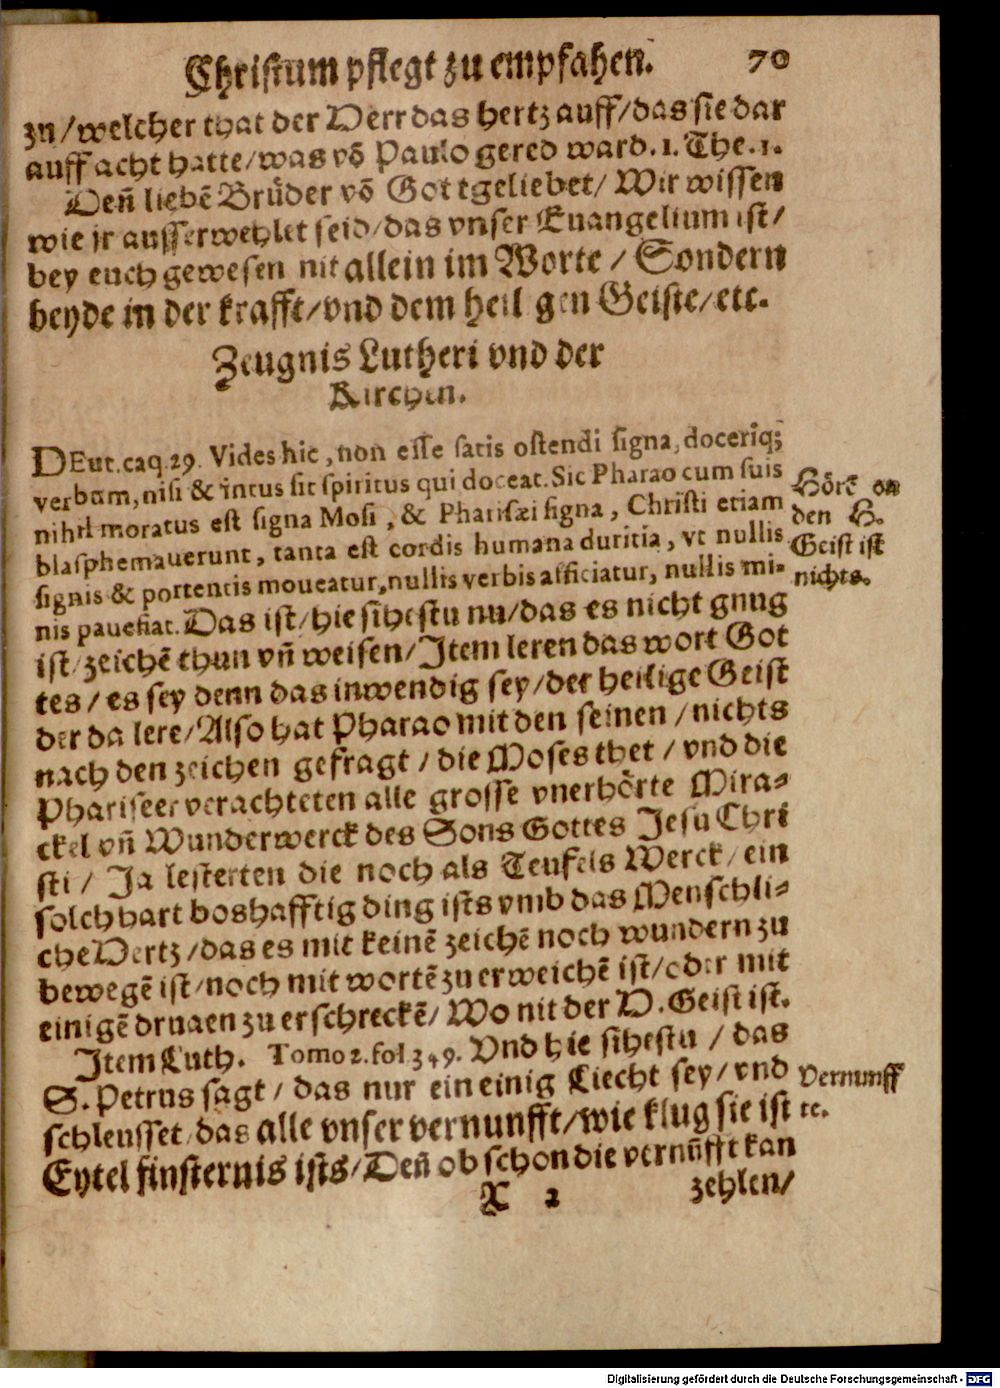 Christum pflegt zu empfahen. 70
zu/welcher that der Herr das hertz auff/das sie dar
auff acht hatte/was võ Paulo gered ward. 1. The. 1.
Den̄ liebẽ Brüder võ Gott geliebet/ Wir wissen
wie jr ausserwehlet seid/das vnser Euangelium ist/
bey euch gewesen nit allein im Worte / Sondern
beyde in der krafft/vnd dem heil gen Geiste/etc.
Zeugnis Lutheri vnd der
Kirchen.
DEut. caq. 29. Vides hic, non esse satis ostendi signa, doceriq;
verbum, nisi & intus sit spiritus qui doceat. Sic Pharao cum suis
nihil moratus est signa Mosi, & Pharisæi signa, Christi etiam
blasphemauerunt, tanta est cordis humana duritia, vt nullis
signis & portentis moueatur, nullis verbis afficiatur, nullis mi-
nis pauefiat. Das ist/hie sihestu nu/das es nicht gnug
ist/zeichẽ thun vn̄ weisen/Item leren das wort Got
tes/es sey denn das inwendig sey/der heilige Geist
der da lere/Also hat Pharao mit den seinen/nichts
nach den zeichen gefragt/die Moses thet/vnd die
Phariseer verachteten alle grosse vnerhörte Mira-
ckel vn̄ Wunderwerck des Sons Gottes Jesu Chri
sti/ Ja lesterten die noch als Teufels Werck/ein
solch hart boshafftig ding ists vmb das Menschli-
che Hertz/das es mit keinẽ zeichẽ noch wundern zu
bewegẽ ist/noch mit wortẽ zu erweichẽ ist/oder mit
einigẽ druaen zu erschreckẽ/Wo nit der H. Geist ist.
Item Luth. Tomo 2. fol. 349. Vnd hie sihestu/das
S. Petrus sagt/das nur ein einig Liecht sey/vnd
schleusset/das alle vnser vernunfft/wie klug sie ist
Eytel finsternis ists/Den̄ ob schon die vernũfft kan
X 2 zehlen/
Hörẽ on
den H.
Geist ist
nichts.
Vernunff
tc.
Digitalisierung gefördert durch die Deutsche Forschungsgemeinschaft - DFG